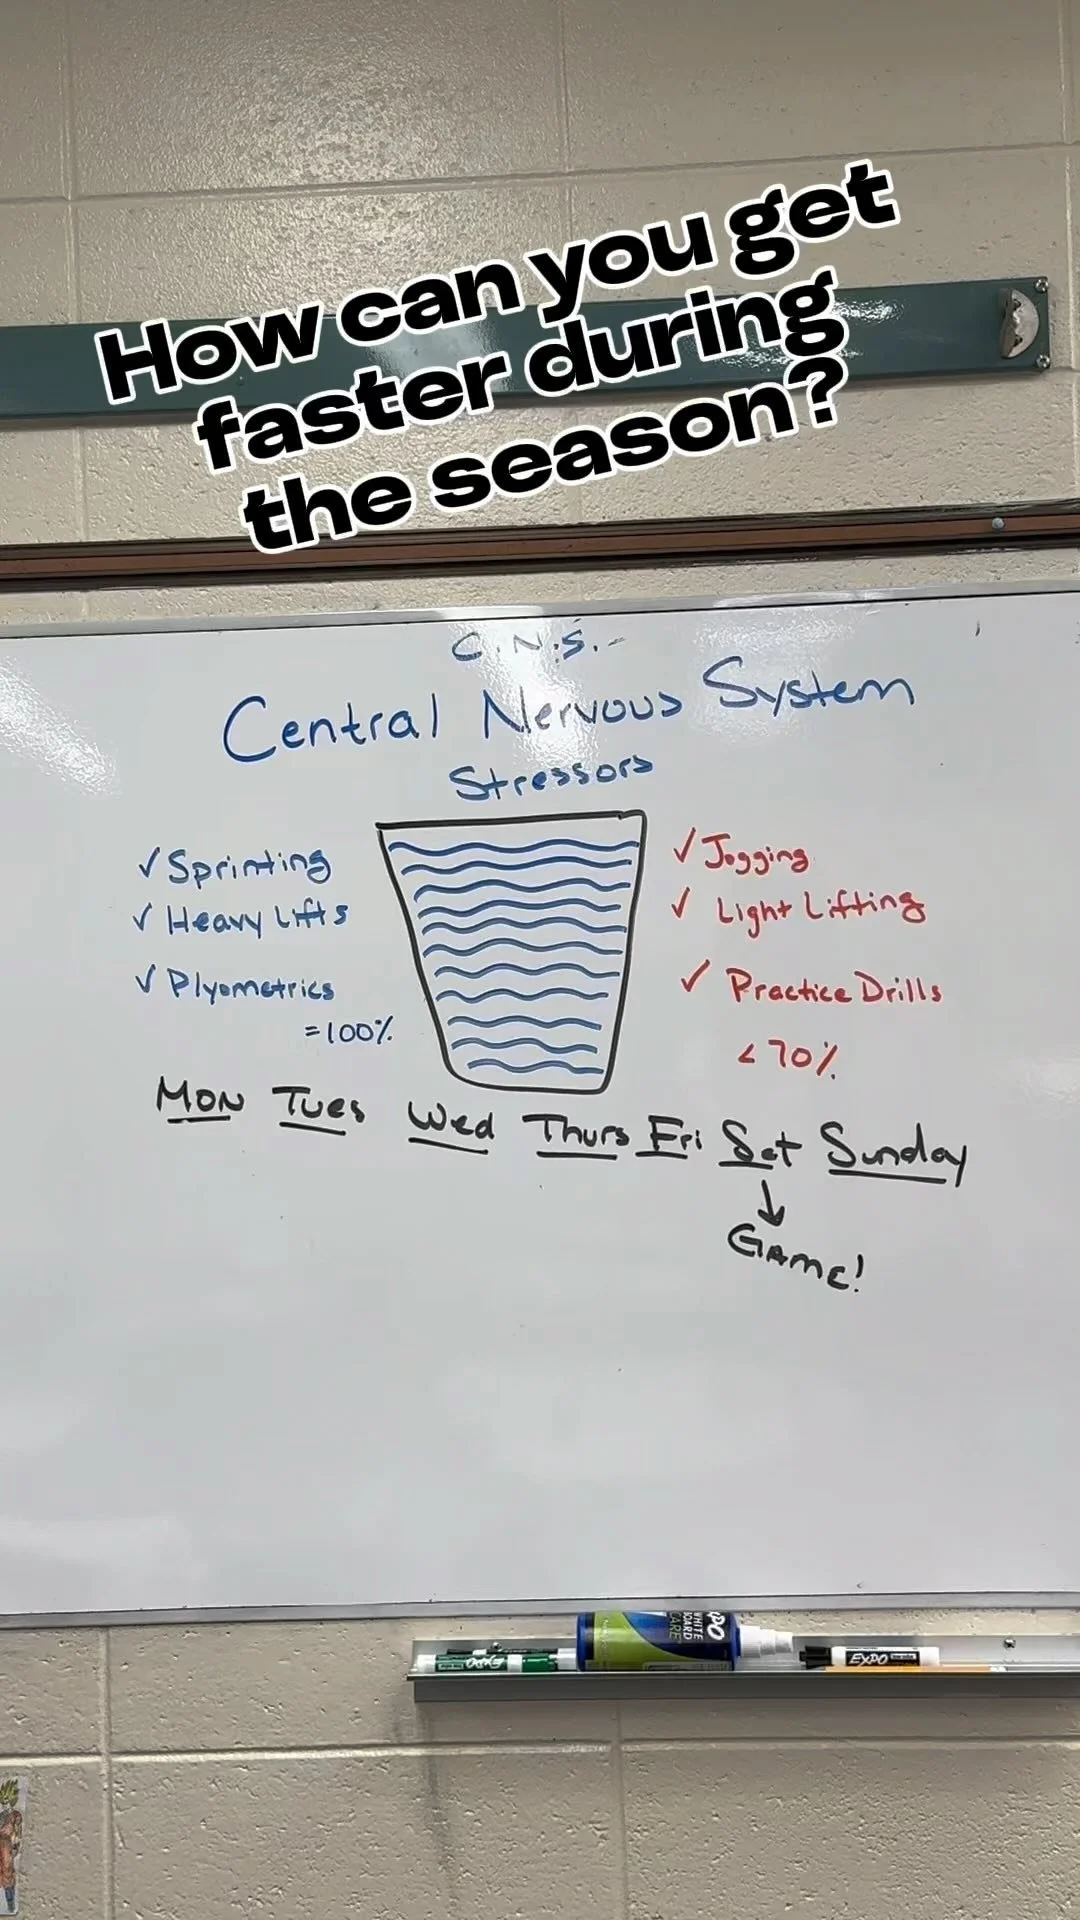 How can you get
faster during
the season?
C.N.S.-
Central Nervous System
Stressors
✓ Sprinting
✓ Heavy Lifts
✓ Plyometrics
=100%
✓ Jogging
✓ Light Lifting
✓ Practice Drills
<70%
Mon Tues Wed Thurs Fri Sat Sunday
↓
Game!
EXPO
EXPO
WHITE
BOARD
CARE
EXPO